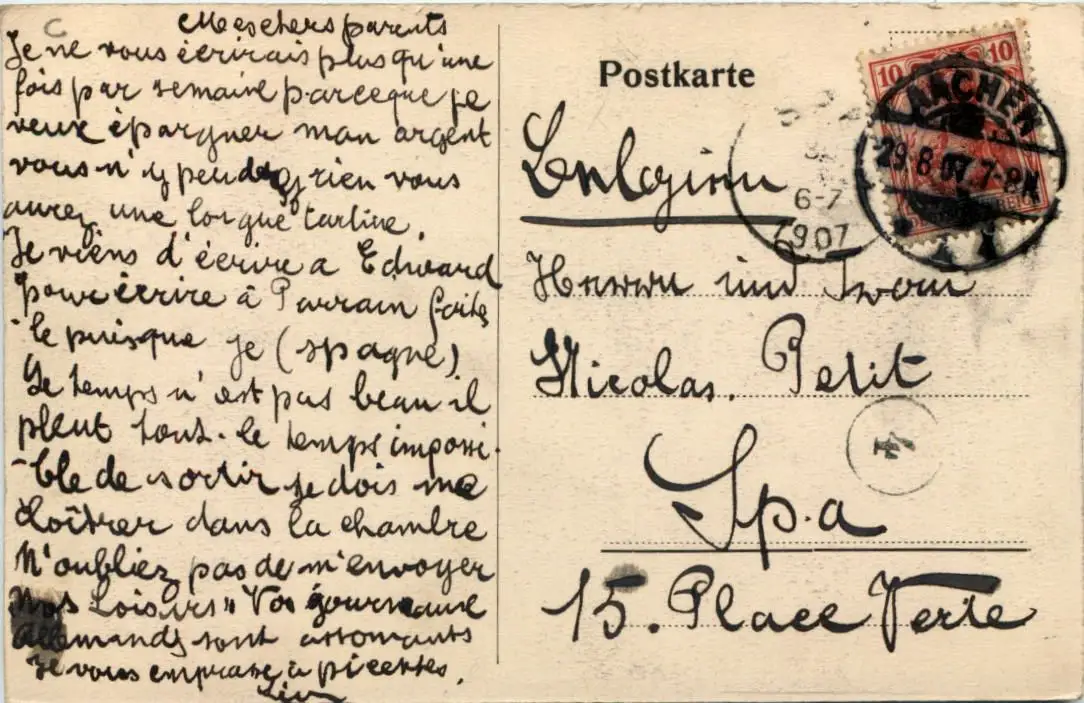 Mes chers parents
Je ne vous écrirais plus qu'une
fois par semaine parceque je
veux épargner mon argent
vous n'y perdez rien vous
aurez une longue tartine.
Je viens d'écrire a Edward
pour écrire à Parrain faites
-le puisque je (spague)
Le temps n'est pas beau il
pleut tout. le temps impossi-
-ble de sortir je dois me
cloîtrer dans la chambre
N'oubliez pas de m'envoyer
"Nos Loisirs" Vos journeaux
Allemands sont assomants
Je vous embrasse à picettes.
Postkarte
10 10
AACHEN
29.8.07.7-8N
1
6-7
1907
Belgien
Herrn und Frau
Nicolas. Petit
4
Spa
15. Place Verte